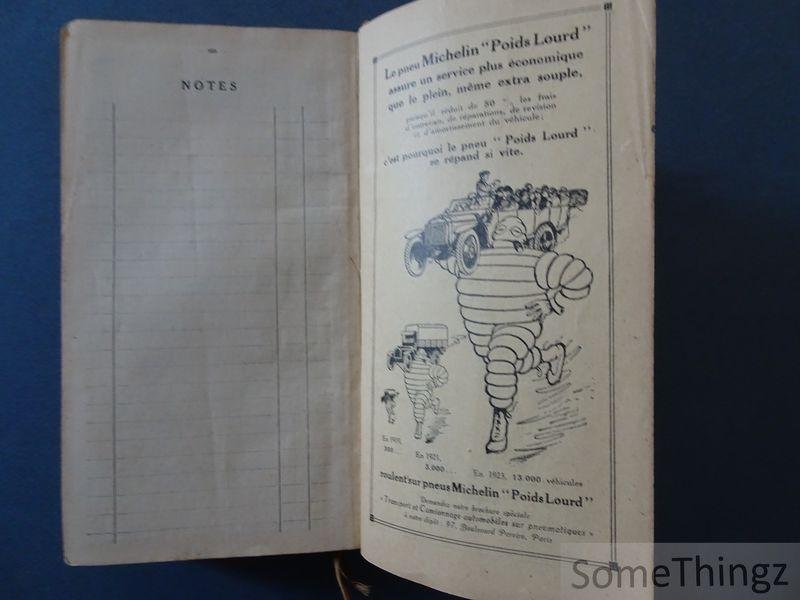 NOTES
Le pneu Michelin "Poids Lourd"
assure un service plus économique
que le plein, même extra souple,
puisqu'il réduit de 50 % les frais
d'entretien, de réparations, de révision
et d'amortissement du véhicule;
c'est pourquoi le pneu "Poids Lourd"
se répand si vite.
En 1919,
300...
En 1921,
3.000...
En 1923, 13.000 véhicules
roulent sur pneus Michelin "Poids Lourd"
Demandez notre brochure spéciale
"Transport et Camionnage automobiles sur pneumatiques"
à notre dépôt : 97, Boulevard Pereire, Paris
SomeThingz